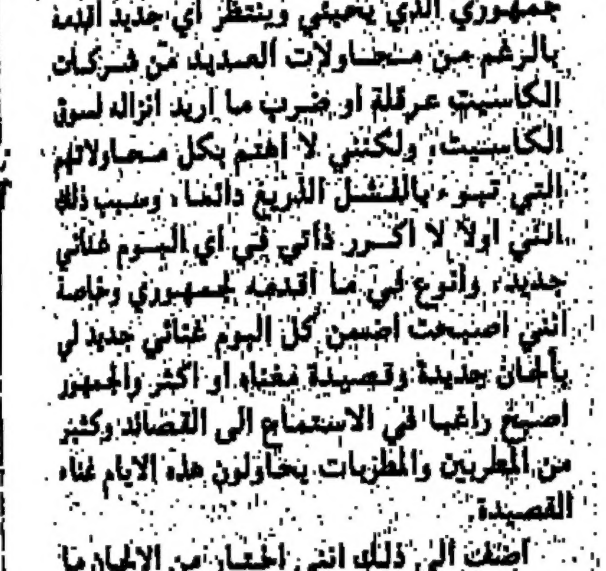 جمهوري الذي يحبني وينتظر أي جديد أقدمه
بالرغم من محاولات العديد من شركات
الكاسيت عرقلة او ضرب ما اريد انزاله لسوق
الكاسيت، ولكنني لا اهتم بكل محاولاتهم
التي تبوء بالفشل الذريع دائما، وسبب ذلك
انني اولا لا اكرر ذاتي في أي البوم غنائي
جديد، وأنوع في ما أقدمه لجمهوري وخاصة
انني اصبحت اضمن كل البوم غنائي جديد لي
بألحان جديدة وقصيدة مغناه او اكثر والجمهور
اصبح راغبا في الاستماع الى القصائد وكثير
من المطربين والمطربات يحاولون هذه الايام غناء
القصيدة.
اضف الى ذلك انني اختار من الالحان ما